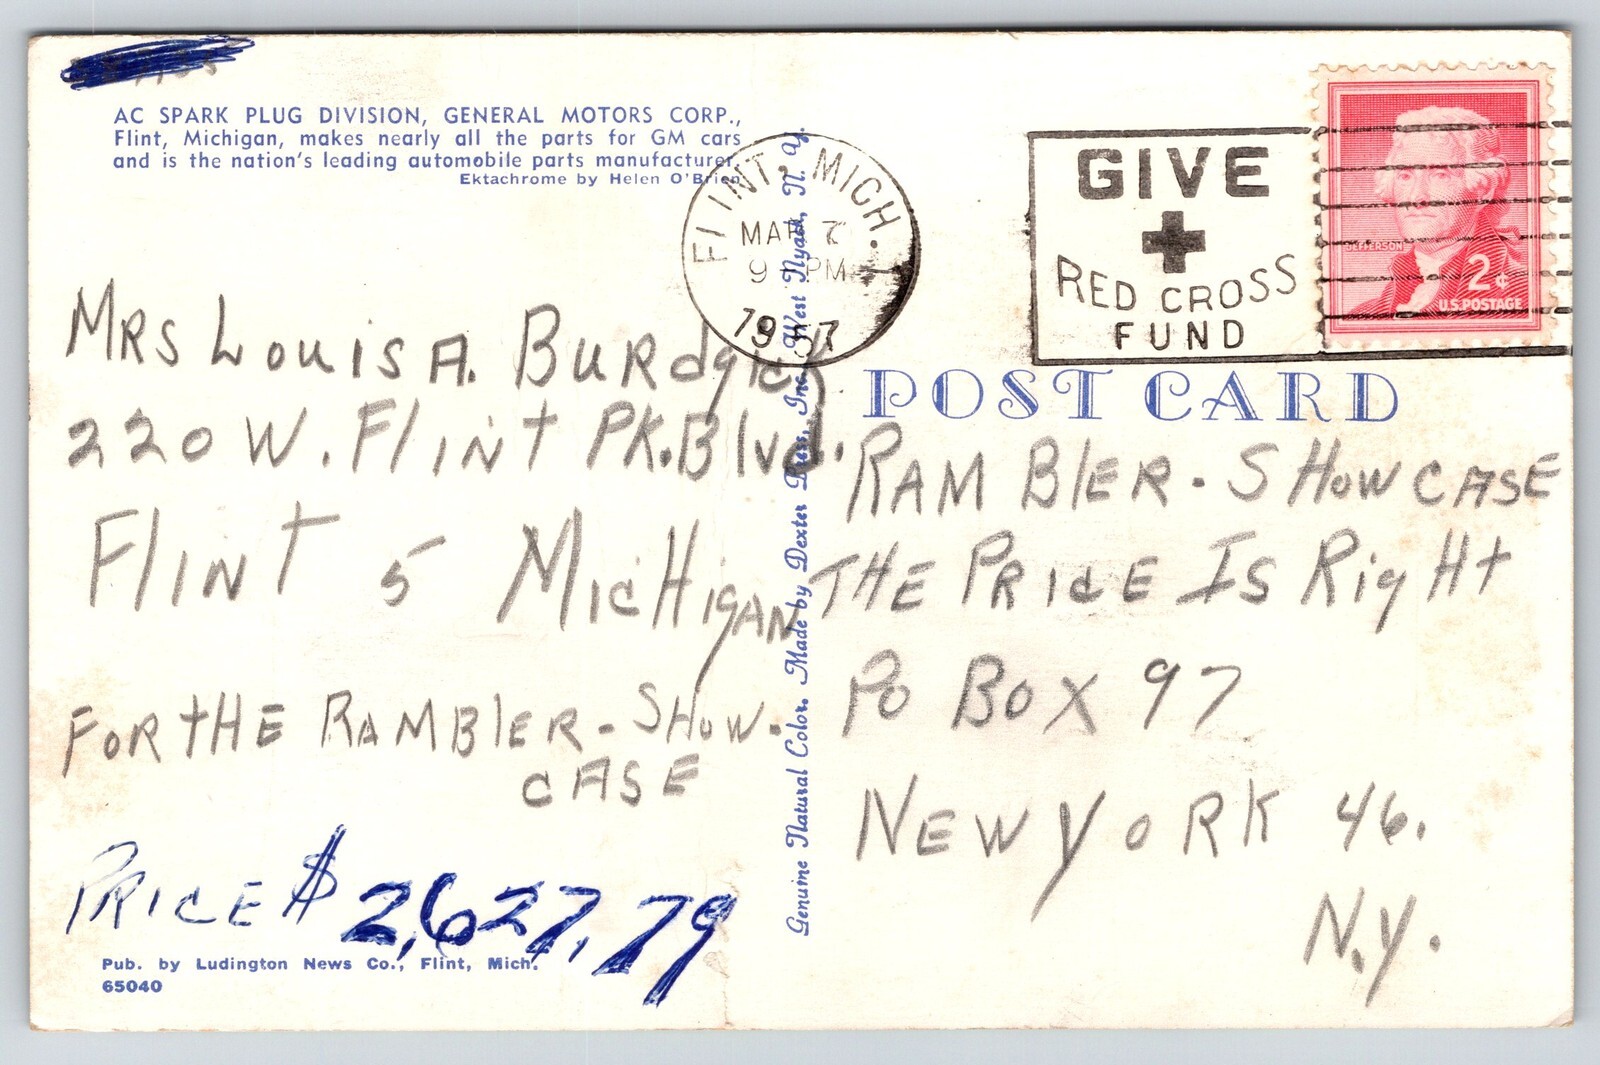 AC SPARK PLUG DIVISION, GENERAL MOTORS CORP.,
Flint, Michigan, makes nearly all the parts for GM cars
and is the nation's leading automobile parts manufacturer.
Ektachrome by Helen O'Brien
FLINT, MICH.
MAR 7
9 PM
1957
GIVE
RED CROSS
FUND
JEFFERSON
2¢
U.S. POSTAGE
MRS LouiS A. BuRdgick
220 W. FlINt PK. Blvd.
FlINt 5 MicHigAN
FOR tHE RAMBlER - SHow-
CASE
PRICE $ 2,627.79
Pub. by Ludington News Co., Flint, Mich.
65040
Genuine Natural Color. Made by Dexter Press, Inc. West Nyack, N. Y.
POST CARD
RAMBlER - SHowCASE
tHE PRicE IS RigHt
Po Box 97
NEW YORK 46.
N.Y.